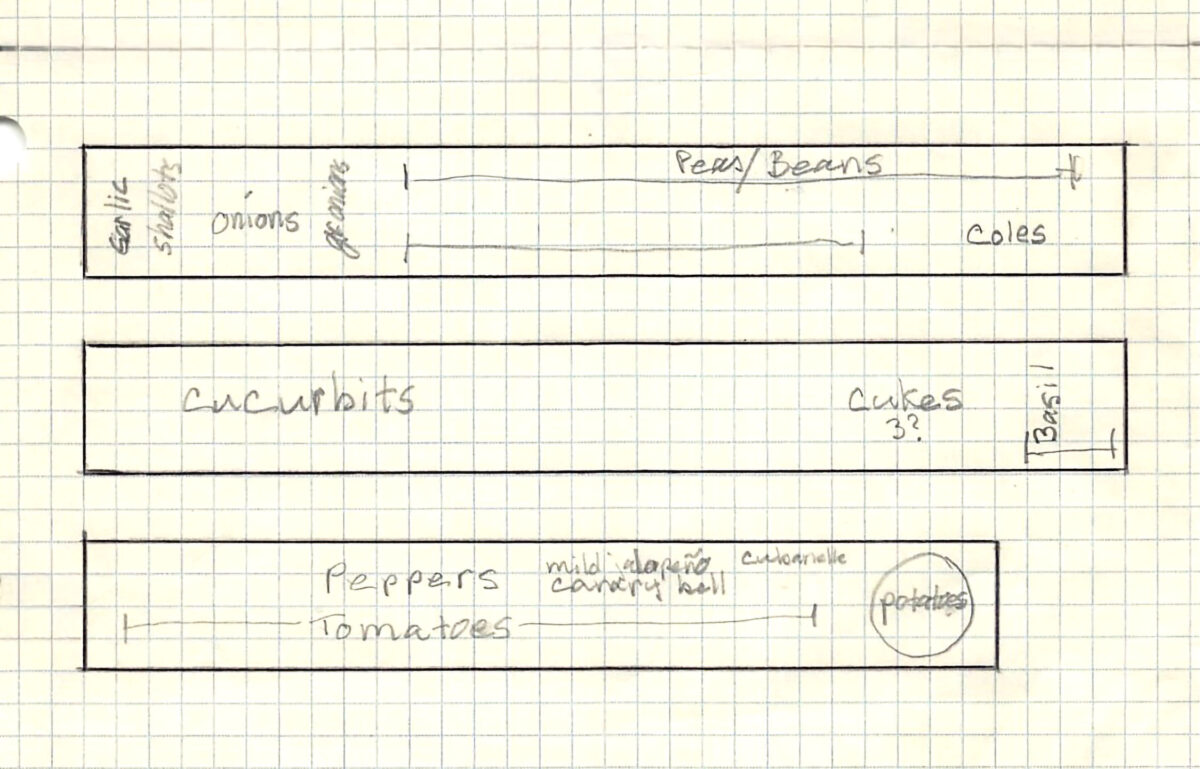 Peas/Beans
Garlic
shallots
onions
gr onions
coles
cucurbits
cukes
3?
Basil
Peppers
mild jalapeño
canary bell
cubanelle
Tomatoes
potatoes